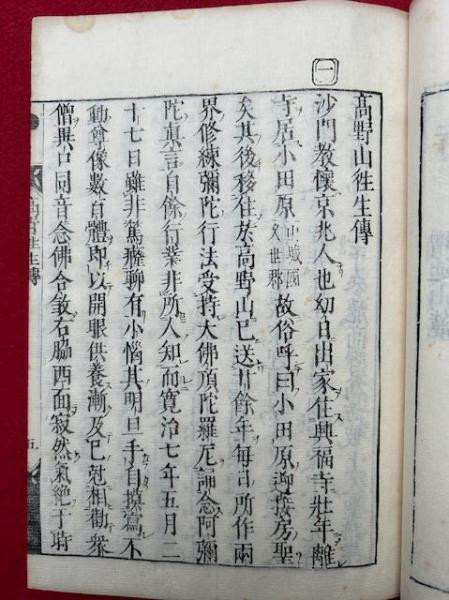 一
髙野山徃生傳
沙門教懷京兆人也幼日出家住興福寺壯年離
寺居小田原山城國久世郡故俗呼曰小田原迎接房聖
矣其後移住於髙野山已送廿餘年毎日所作兩
界修練彌陀行法受持大佛頂陀羅尼誦念阿彌
陀眞言自餘行業非所人知而寛治七年五月二
十七日雖非篤癃聊有小惱其明旦手自摸寫不
動尊像數百體即以開眼供養漸及已剋相勸衆
僧異口同音念佛合斂右脇西面寂然氣絶于時
徃生傳
五